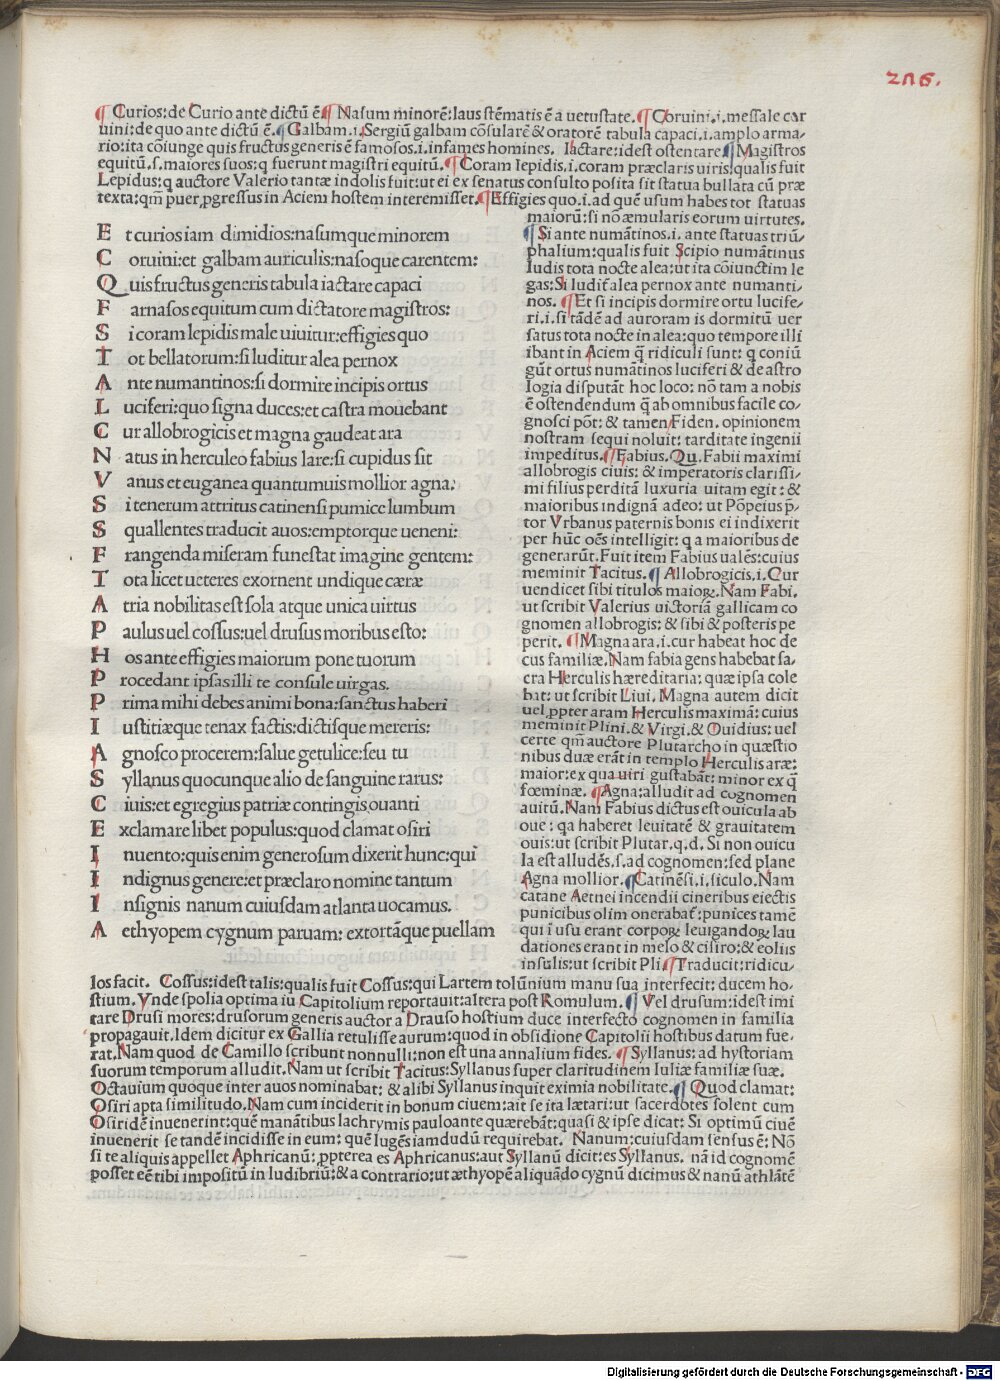 206.
¶ Curios: de Curio ante dictū ē. ¶ Nasum minorē: laus stēmatis ē a uetustate. ¶ Coruini .i. messalæ cor
uini: de quo ante dictū ē. ¶ Galbam .i. Sergiū galbam cōsularē & oratorē tabula capaci .i. amplo arma-
rio: ita cōiunge quis fructus generis ē famosos .i. infames homines. Iactare: idest ostentare ¶ Magistros
equitū .s. maiores suos: q fuerunt magistri equitū. ¶ Coram lepidis .i. coram præclaris uiris: qualis fuit
Lepidus: q auctore Valerio tantæ indolis fuit: ut ei ex senatus consulto posita sit statua bullata cū præ
texta: qm̄ puer ꝓgressus in Aciem hostem interemisset. ¶ Effigies quo .i. ad quē usum habes tot statuas
E t curios iam dimidios: nasumque minorem
C oruini: et galbam auriculis: nasoque carentem:
Q uis fructus generis tabula iactare capaci
F amosos equitum cum dictatore magistros:
S i coram lepidis male uiuitur: effigies quo
T ot bellatorum: si luditur alea pernox
A nte numantinos: si dormire incipis ortus
L uciferi: quo signa duces: et castra mouebant
C ur allobrogicis et magna gaudeat ara
N atus in herculeo fabius lare: si cupidus sit
V anus et euganea quantumuis mollior agna:
S i tenerum attritus catinensi pumice lumbum
S quallentes traducit auos: emptorque ueneni:
F rangenda miseram funestat imagine gentem:
T ota licet ueteres exornent undique cæræ
A tria nobilitas est sola atque unica uirtus
P aulus uel cossus: uel drusus moribus esto:
H os ante effigies maiorum pone tuorum
P rocedant ipsas illi te consule uirgas.
P rima mihi debes animi bona: sanctus haberi
I ustitiæque tenax factis: dictisque mereris:
A gnosco procerem: salue getulice: seu tu
S yllanus quocunque alio de sanguine rarus:
C iuis: et egregius patriæ contingis ouanti
E xclamare libet populus: quod clamat osiri
I nuento: quis enim generosum dixerit hunc: qui
I ndignus genere: et præclaro nomine tantum
I nsignis nanum cuiusdam atlanta uocamus.
A ethyopem cygnum paruam: extortāque puellam
maiorū: si nō æmularis eorum uirtutes.
¶ Si ante numātinos .i. ante statuas triū-
phalium: qualis fuit Scipio numātinus
ludis tota nocte alea: ut ita cōiunctim le
gas: Si ludit alea pernox ante numanti-
nos. ¶ Et si incipis dormire ortu lucife-
ri .i. si tādē ad auroram is dormitū uer
satus tota nocte in alea: quo tempore illi
ibant in Aciem q̄ ridiculi sunt: q coniū
gūt ortus numātinos luciferi & de astro
logia disputāt hoc loco: nō tam a nobis
ē ostendendum q̄ ab omnibus facile co-
gnosci pōt: & tamen Fiden. opinionem
nostram sequi noluit: tarditate ingenii
impeditus. ¶ Fabius. Qu. Fabii maximi
allobrogis ciuis: & imperatoris clarissi-
mi filius perditā luxuria uitam egit: &
maioribus indignā adeo: ut Pōpeius p̄-
tor Vrbanus paternis bonis ei indixerit
per hūc oēs intelligit: q a maioribus de
generarūt. Fuit item Fabius ualēs: cuius
meminit Tacitus. ¶ Allobrogicis .i. Cur
uendicet sibi titulos maioꝝ. Nam Fabi.
ut scribit Valerius uictoriā gallicam co
gnomen allobrogis: & sibi & posteris pe
perit. ¶ Magna ara .i. cur habeat hoc de
cus familiæ. Nam fabia gens habebat sa-
cra Herculis hæreditaria: quæ ipsa cole
bat: ut scribit Liui. Magna autem dicit
uel ꝓpter aram Herculis maximā: cuius
meminit Plini. & Virgi. & Ouidius: uel
certe qm̄ auctore Plutarcho in quæstio
nibus duæ erāt in templo Herculis aræ:
maior: ex qua uiri gustabāt: minor ex q̄
fœminæ. ¶ Agna: alludit ad cognomen
auitū. Nam Fabius dictus est ouicula ab
oue: qa haberet leuitatē & grauitatem
ouis: ut scribit Plutar. q.d. Si non ouicu
la est alludēs .s. ad cognomen: sed plane
Agna mollior. ¶ Catinēsi .i. siculo. Nam
catane Aetnei incendii cineribus eiectis
punicibus olim onerabat̄: punices tamē
qui ī usu erant corpoꝝ leuigandoꝝ lau
dationes erant in melo & cisiro: & eoliis
insulis: ut scribit Pli. ¶ Traducit: ridicu-
los facit. Cossus: idest talis: qualis fuit Cossus: qui Lartem tolūnium manu sua interfecit: ducem ho-
stium. Vnde spolia optima iu Capitolium reportauit: altera post Romulum. ¶ Vel drusum: idest imi
tare Drusi mores: drusorum generis auctor a Drauso hostium duce interfecto cognomen in familia
propagauit. Idem dicitur ex Gallia retulisse aurum: quod in obsidione Capitolii hostibus datum fue-
rat. Nam quod de Camillo scribunt nonnulli: non est una annalium fides. ¶ Syllanus: ad hystoriam
suorum temporum alludit. Nam ut scribit Tacitus: Syllanus super claritudinem Iuliæ familiæ suæ.
Octauium quoque inter auos nominabat: & alibi Syllanus inquit eximia nobilitate. ¶ Quod clamat:
Osiri apta similitudo. Nam cum inciderit in bonum ciuem: ait se ita lætari: ut sacerdotes solent cum
Osiridē inuenerint: quē manātibus lachrymis pauloante quærebāt: quasi & ipse dicat: Si optimū ciuē
inuenerit se tandē incidisse in eum: quē lugēs iamdudū requirebat. Nanum: cuiusdam sensus ē: Nō
si te aliquis appellet Aphricanū: ꝓpterea es Aphricanus: aut Syllanū dicit: es Syllanus. nā id cognomē
posset eē tibi impositū in ludibriū: & a contrario: ut æthyopē aliquādo cygnū dicimus & nanū athlātē
Digitalisierung gefördert durch die Deutsche Forschungsgemeinschaft - DFG